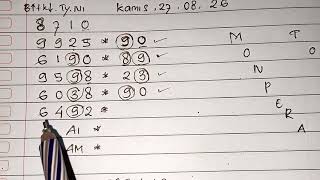 Kamis, 27.08.26
8710
9925 * 90
6190 * 89
9598 * 29
6038 * 90
6492 *
AI *
AM *
M T
O O
S N
P
E
R
A